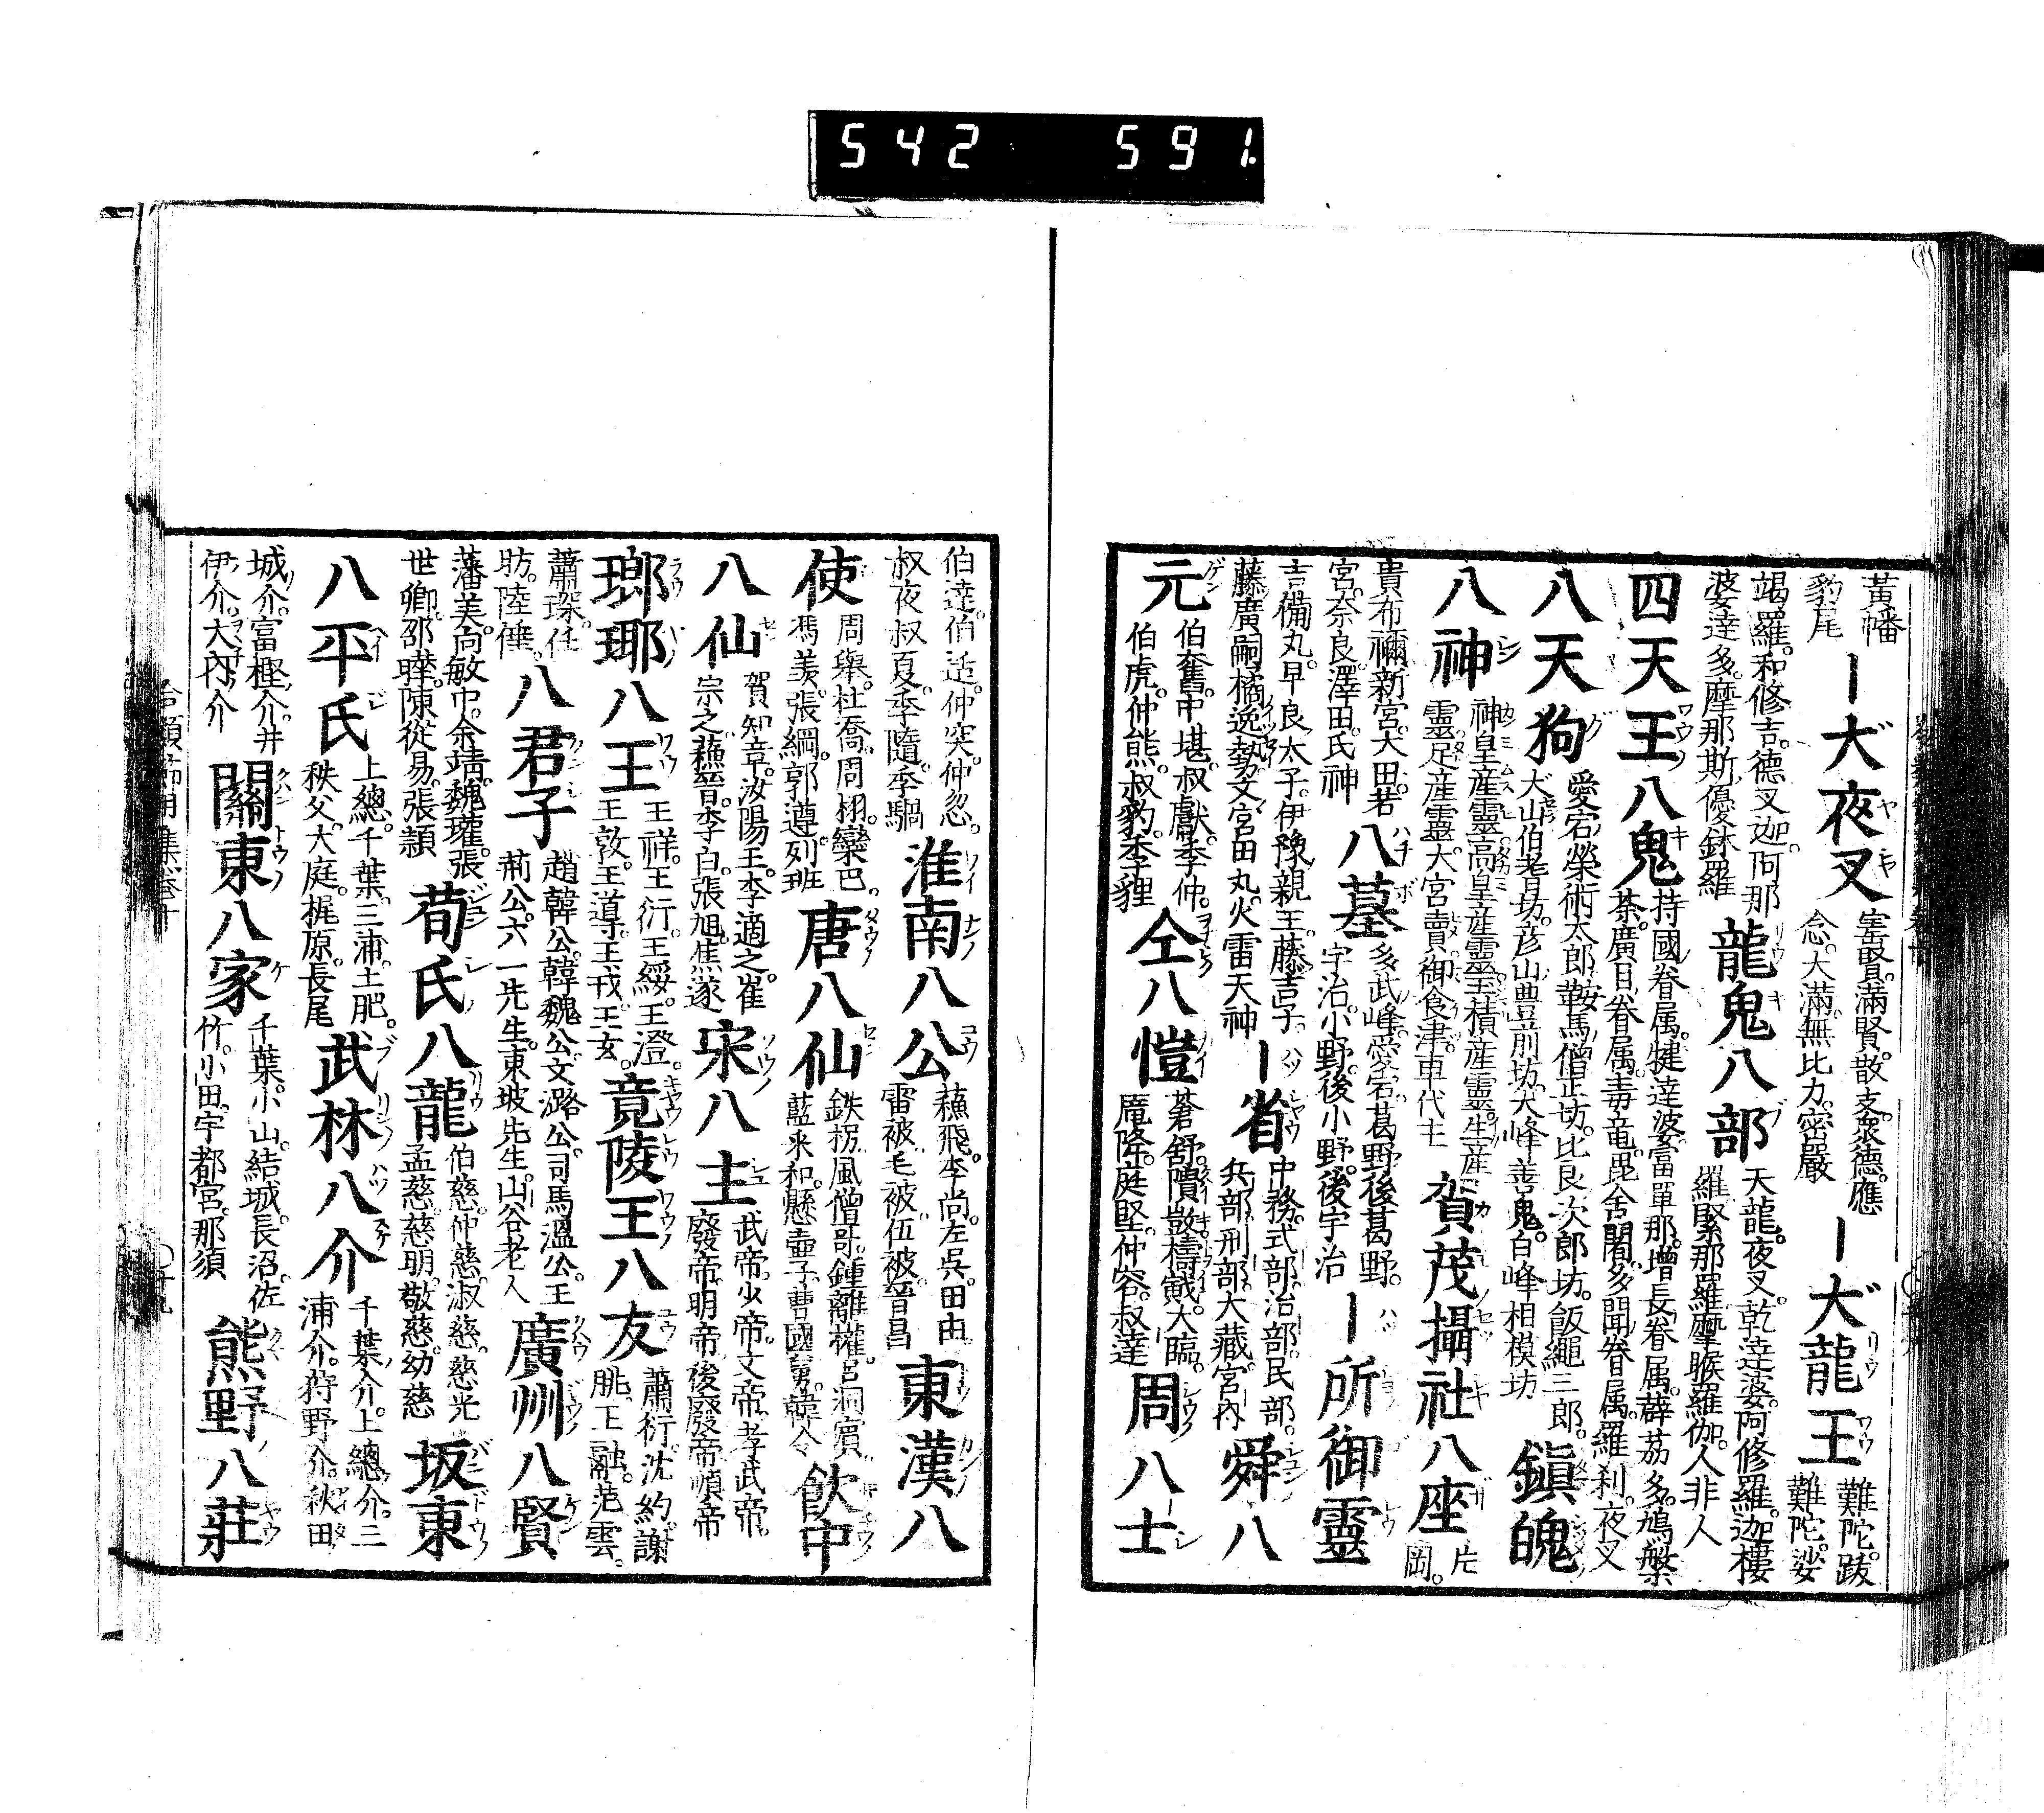 542 591
黃幡
豹尾
｜大夜叉
寳賢。滿賢。散支。衆德。應
念。大滿。無比力。密嚴
｜大龍王
難陀。跋
難陀。娑
竭羅。和修吉。德叉迦。阿那
婆達多。摩那斯。優鉢羅
龍鬼八部
天龍。夜叉。乾達婆。阿修羅。迦樓
羅。緊那羅。摩睺羅伽。人非人
四天王八鬼
持國眷属。犍達婆。富單那。増長眷属。薜茘多。鳩槃
荼。廣目眷属。毒竜。毘舍闍。多聞眷属。羅刹。夜叉
八天狗
愛宕榮術太郎。鞍馬僧正坊。比良次郎坊。飯繩三郎。
大山伯耆坊。彦山豊前坊。大峰善鬼。白峰相模坊
鎭魄
八神
神皇産靈。高皇産靈。玉積産靈。生産
靈。足産靈。大宮賣。御食津。事代主
賀茂攝社八座
片
岡。
貴布禰。新宮。大田。若
宮。奈良。澤田。氏神
八墓
多武峰。愛宕。葛野。後葛野。
宇治。小野。後小野。後宇治
｜所御靈
吉備丸。早良太子。伊豫親王。藤吉子。
藤廣嗣。橘逸勢。文宮田丸。火雷天神
｜省
中務。式部。治部。民部。
兵部。刑部。大藏。宮內
舜八
元
伯奮。中堪。叔獻。季仲。
伯虎。仲熊。叔豹。季貍
仝八愷
蒼舒。隤敱。檮戭。大臨。
尨降。庭堅。仲容。叔達
周八士
伯達。伯适。仲突。仲忽。
叔夜。叔夏。季隨。季騧
淮南八公
蘇飛。李尚。左呉。田由。
雷被。毛被。伍被。晉昌
東漢八
使
周舉。杜喬。周栩。欒巴。
馮羨。張綱。郭遵。刘班
唐八仙
鉄拐。風僧哥。鍾離權。呂洞賓。
藍釆和。懸壺子。曹國舅。韓令
飮中
八仙
賀知章。汝陽王。李適之。崔
宗之。蘇晉。李白。張旭。焦遂
宋八主
武帝。少帝。文帝。孝武帝。
廢帝。明帝。後廢帝。順帝
瑯琊八王
王祥。王衍。王綏。王澄。
王敦。王導。王戎。王玄。
竟陵王八友
蕭衍。沈約。謝
朓。王融。范雲。
蕭琛。任
昉。陸倕。
八君子
趙韓公。韓魏公。文潞公。司馬溫公。王
荊公。六一先生。東坡先生。山谷老人
廣州八賢
潘美。向敏中。余靖。魏瓘。張
世卿。邵曄。陳從易。張頴
荀氏八龍
伯慈。仲慈。淑慈。慈光
孟慈。慈明。敬慈。幼慈
坂東
八平氏
上總。千葉。三浦。土肥。
秩父。大庭。梶原。長尾
武林八介
千葉介。上總介。三
浦介。狩野介。秋田
城介。富樫介。井
伊介。大內介
關東八家
千葉。小山。結城。長沼。佐
竹。小田。宇都宮。那須
熊野八莊
合類節用集卷十